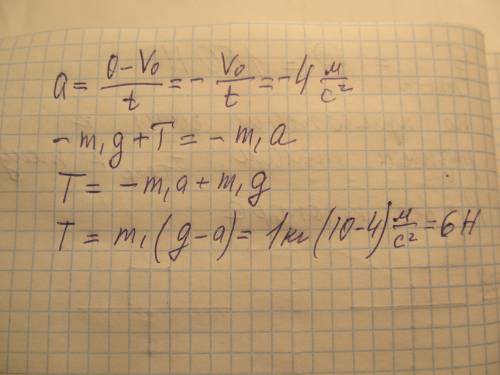 a = (0 - V₀)/t = - V₀/t = -4 м/с²
- m₁g + T = - m₁a
T = - m₁a + m₁g
T = m₁(g - a) = 1кг(10 - 4) м/с² = 6Н